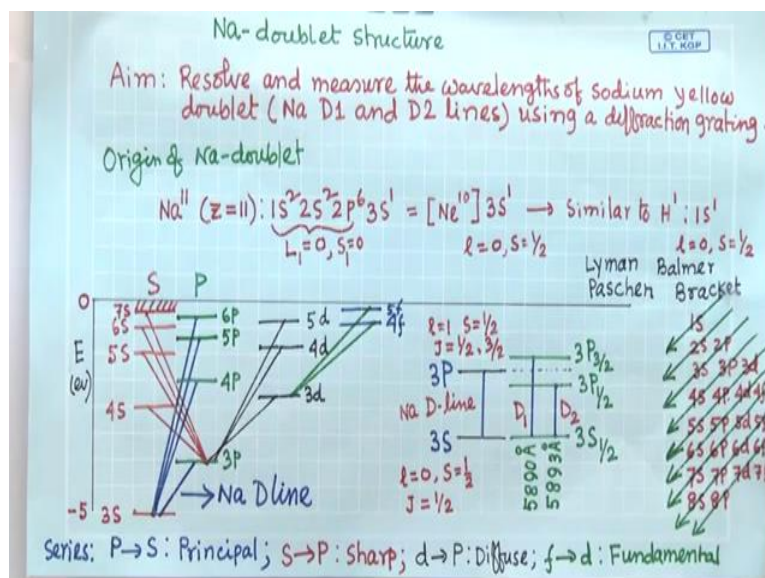 Na-doublet structure
© CET
I.I.T. KGP
Aim: Resolve and measure the wavelengths of sodium yellow
doublet (Na D1 and D2 lines) using a diffraction grating.
Origin of Na-doublet
Na¹¹ (Z=11): 1S² 2S² 2P⁶ 3S¹ = [Ne¹⁰] 3S¹ → Similar to H¹: 1S¹
L₁=0, S₁=0 l=0, S=1/2 l=0, S=1/2
Lyman Balmer
Paschen Bracket
S P
0
7S 6P 5d 5f
6S 5P 4d 4f
E 5S
(ev) 4P 3d
4S
3P
-5 3S
→ Na D line
l=1 S=1/2
J=1/2, 3/2
3P 3P3/2
3P1/2
Na D-line D₁ D₂
3S 3S1/2
l=0, S=1/2
J=1/2
5890Å
5893Å
1S
2S 2P
3S 3P 3d
4S 4P 4d 4f
5S 5P 5d 5f
6S 6P 6d 6f
7S 7P 7d
8S 8P
Series: P→S: Principal; S→P: Sharp; d→P: Diffuse; f→d: Fundamental